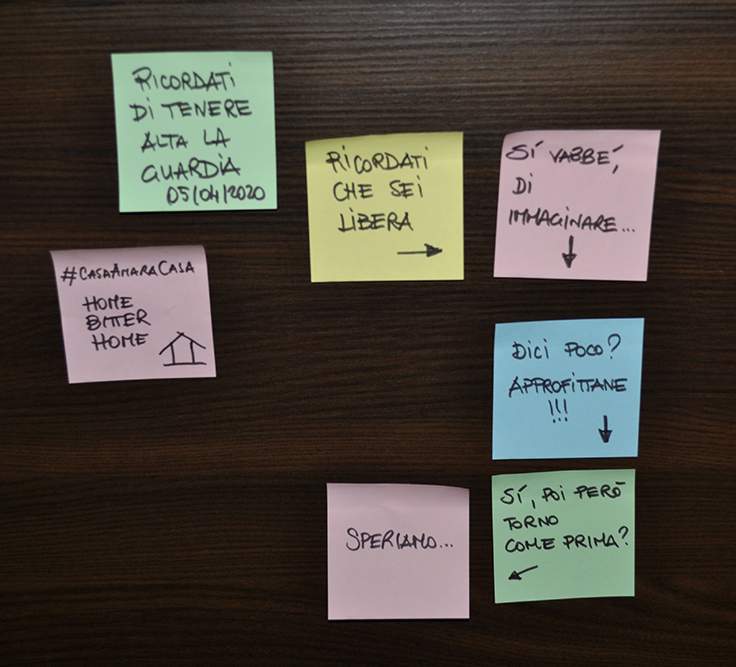 RICORDATI
DI TENERE
ALTA LA
GUARDIA
05/04/2020
#CASAAMARACASA
HOME
BITTER
HOME
RICORDATI
CHE SEI
LIBERA
SÍ VABBÉ,
DI
IMMAGINARE...
DICI POCO?
APPROFITTANE
!!!
SÍ, POI PERÒ
TORNO
COME PRIMA?
SPERIAMO...